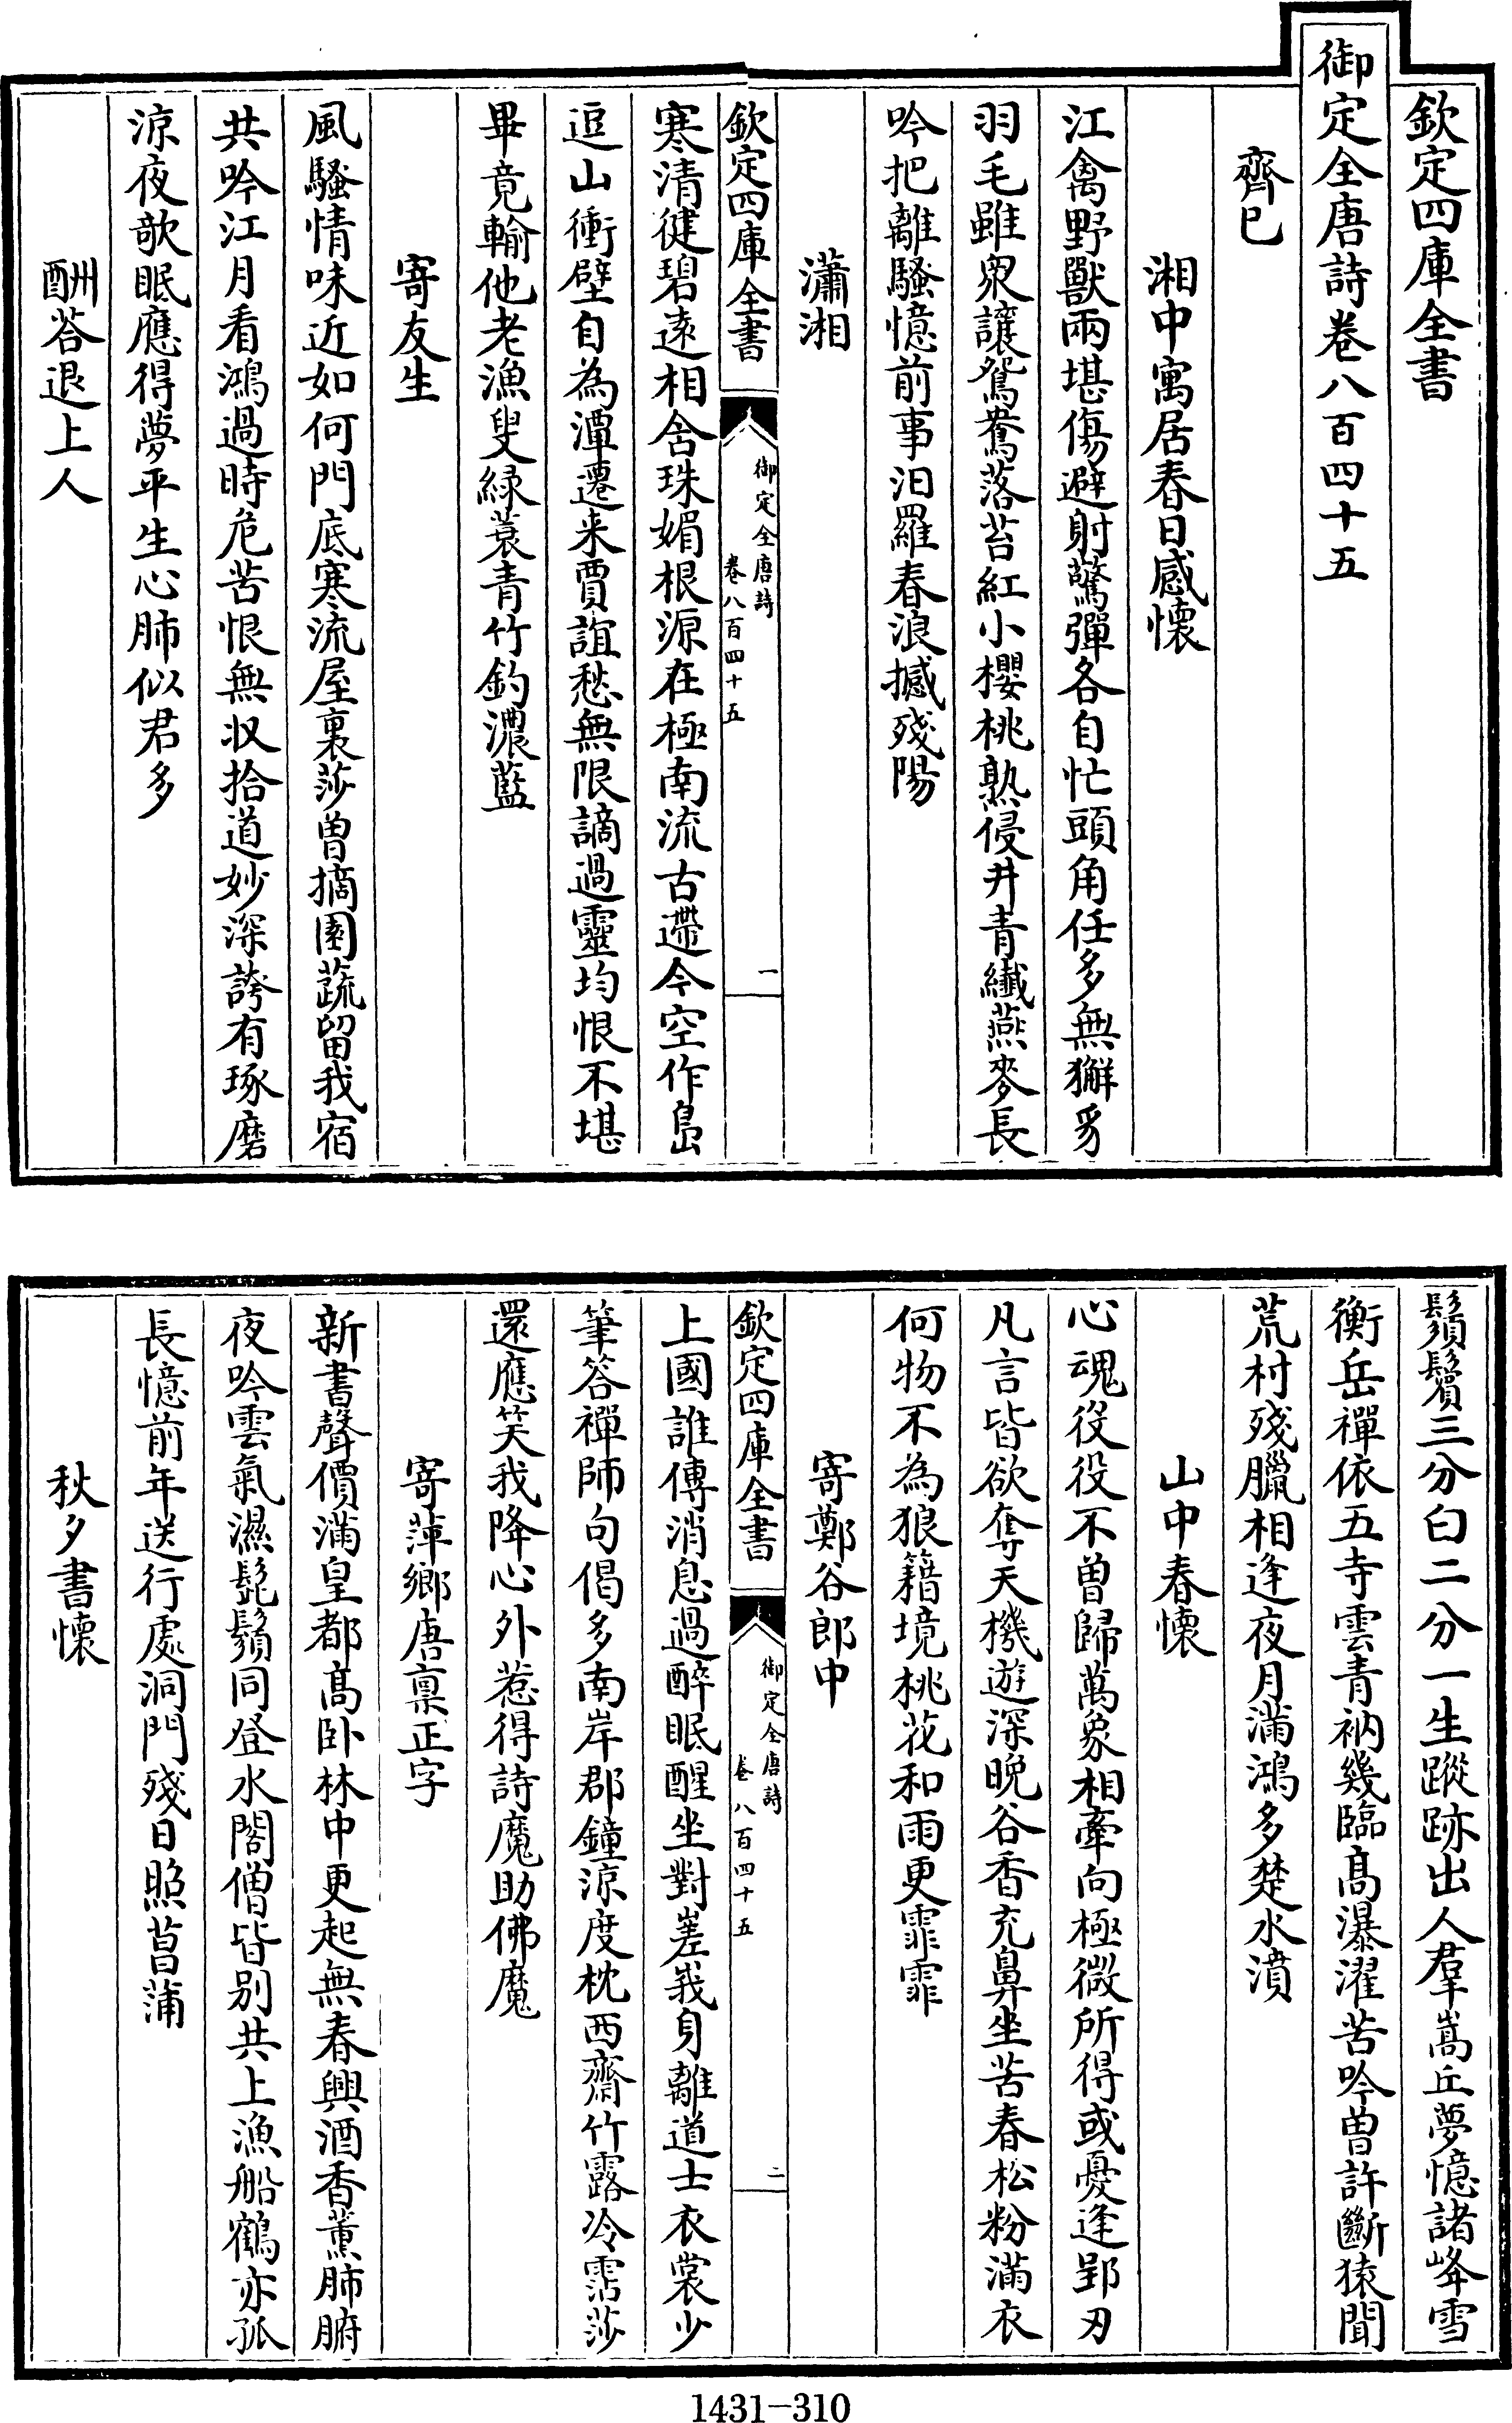 欽定四庫全書
御定全唐詩卷八百四十五
齊已
湘中寓居春日感懷
江禽野獸兩堪傷避射驚彈各自忙頭角任多無獬豸
羽毛雖衆讓鴛鴦落苔紅小櫻桃熟侵井青纖燕麥長
吟把離騷憶前事汨羅春浪撼殘陽
瀟湘
欽定四庫全書
御定全唐詩
卷八百四十五
一
寒清健碧遠相含珠媚根源在極南流古遞今空作島
逗山衝壁自為潭遷来賈誼愁無限謫過靈均恨不堪
畢竟輸他老漁叟綠蓑青竹釣濃藍
寄友生
風騷情味近如何門底寒流屋裏莎曽摘園蔬留我宿
共吟江月看鴻過時危苦恨無収拾道妙深誇有琢磨
涼夜欹眠應得夢平生心肺似君多
酬荅退上人
鬚鬢三分白二分一生蹤跡出人羣嵩丘夢憶諸峰雪
衡岳禪依五寺雲青衲幾臨髙瀑濯苦吟曽許斷猿聞
荒村殘臘相逢夜月滿鴻多楚水濆
山中春懷
心魂役役不曽歸萬象相牽向極微所得或憂逢郢刃
凡言皆欲奪天機遊深晚谷香充鼻坐苦春松粉滿衣
何物不為狼籍境桃花和雨更霏霏
寄鄭谷郎中
欽定四庫全書
御定全唐詩
卷八百四十五
二
上國誰傳消息過醉眠醒坐對嵳峩身離道士衣裳少
筆答禪師句偈多南岸郡鐘涼度枕西齋竹露冷霑莎
還應笑我降心外惹得詩魔助佛魔
寄萍鄉唐禀正字
新書聲價滿皇都髙卧林中更起無春興酒香薰肺腑
夜吟雲氣濕髭鬚同登水閣僧皆别共上漁船鶴亦孤
長憶前年送行處洞門殘日照菖蒲
秋夕書懷
1431-310